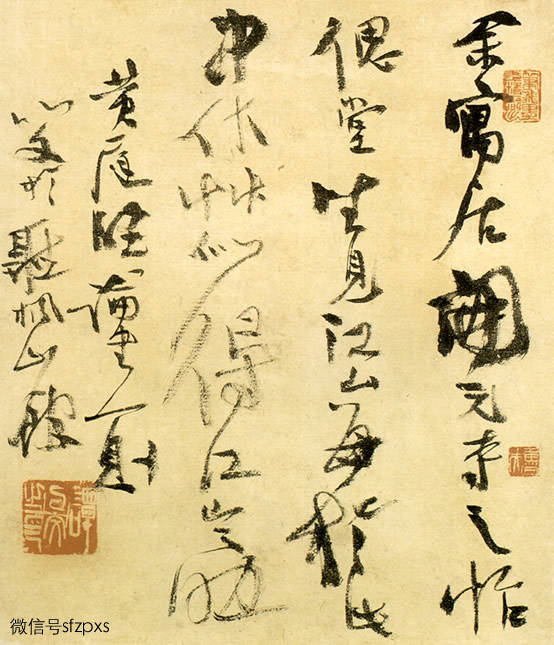 余寓居開元寺之怡
偲堂坐見江山每於此
中作草似得江山之助
黄庭堅論書一則
以文於聽楓山館
微信号sfzpxs